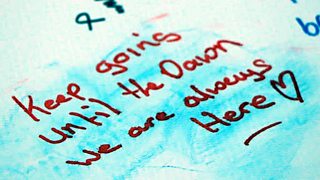 Keep going
Until the Dawn
We are always
Here ♡